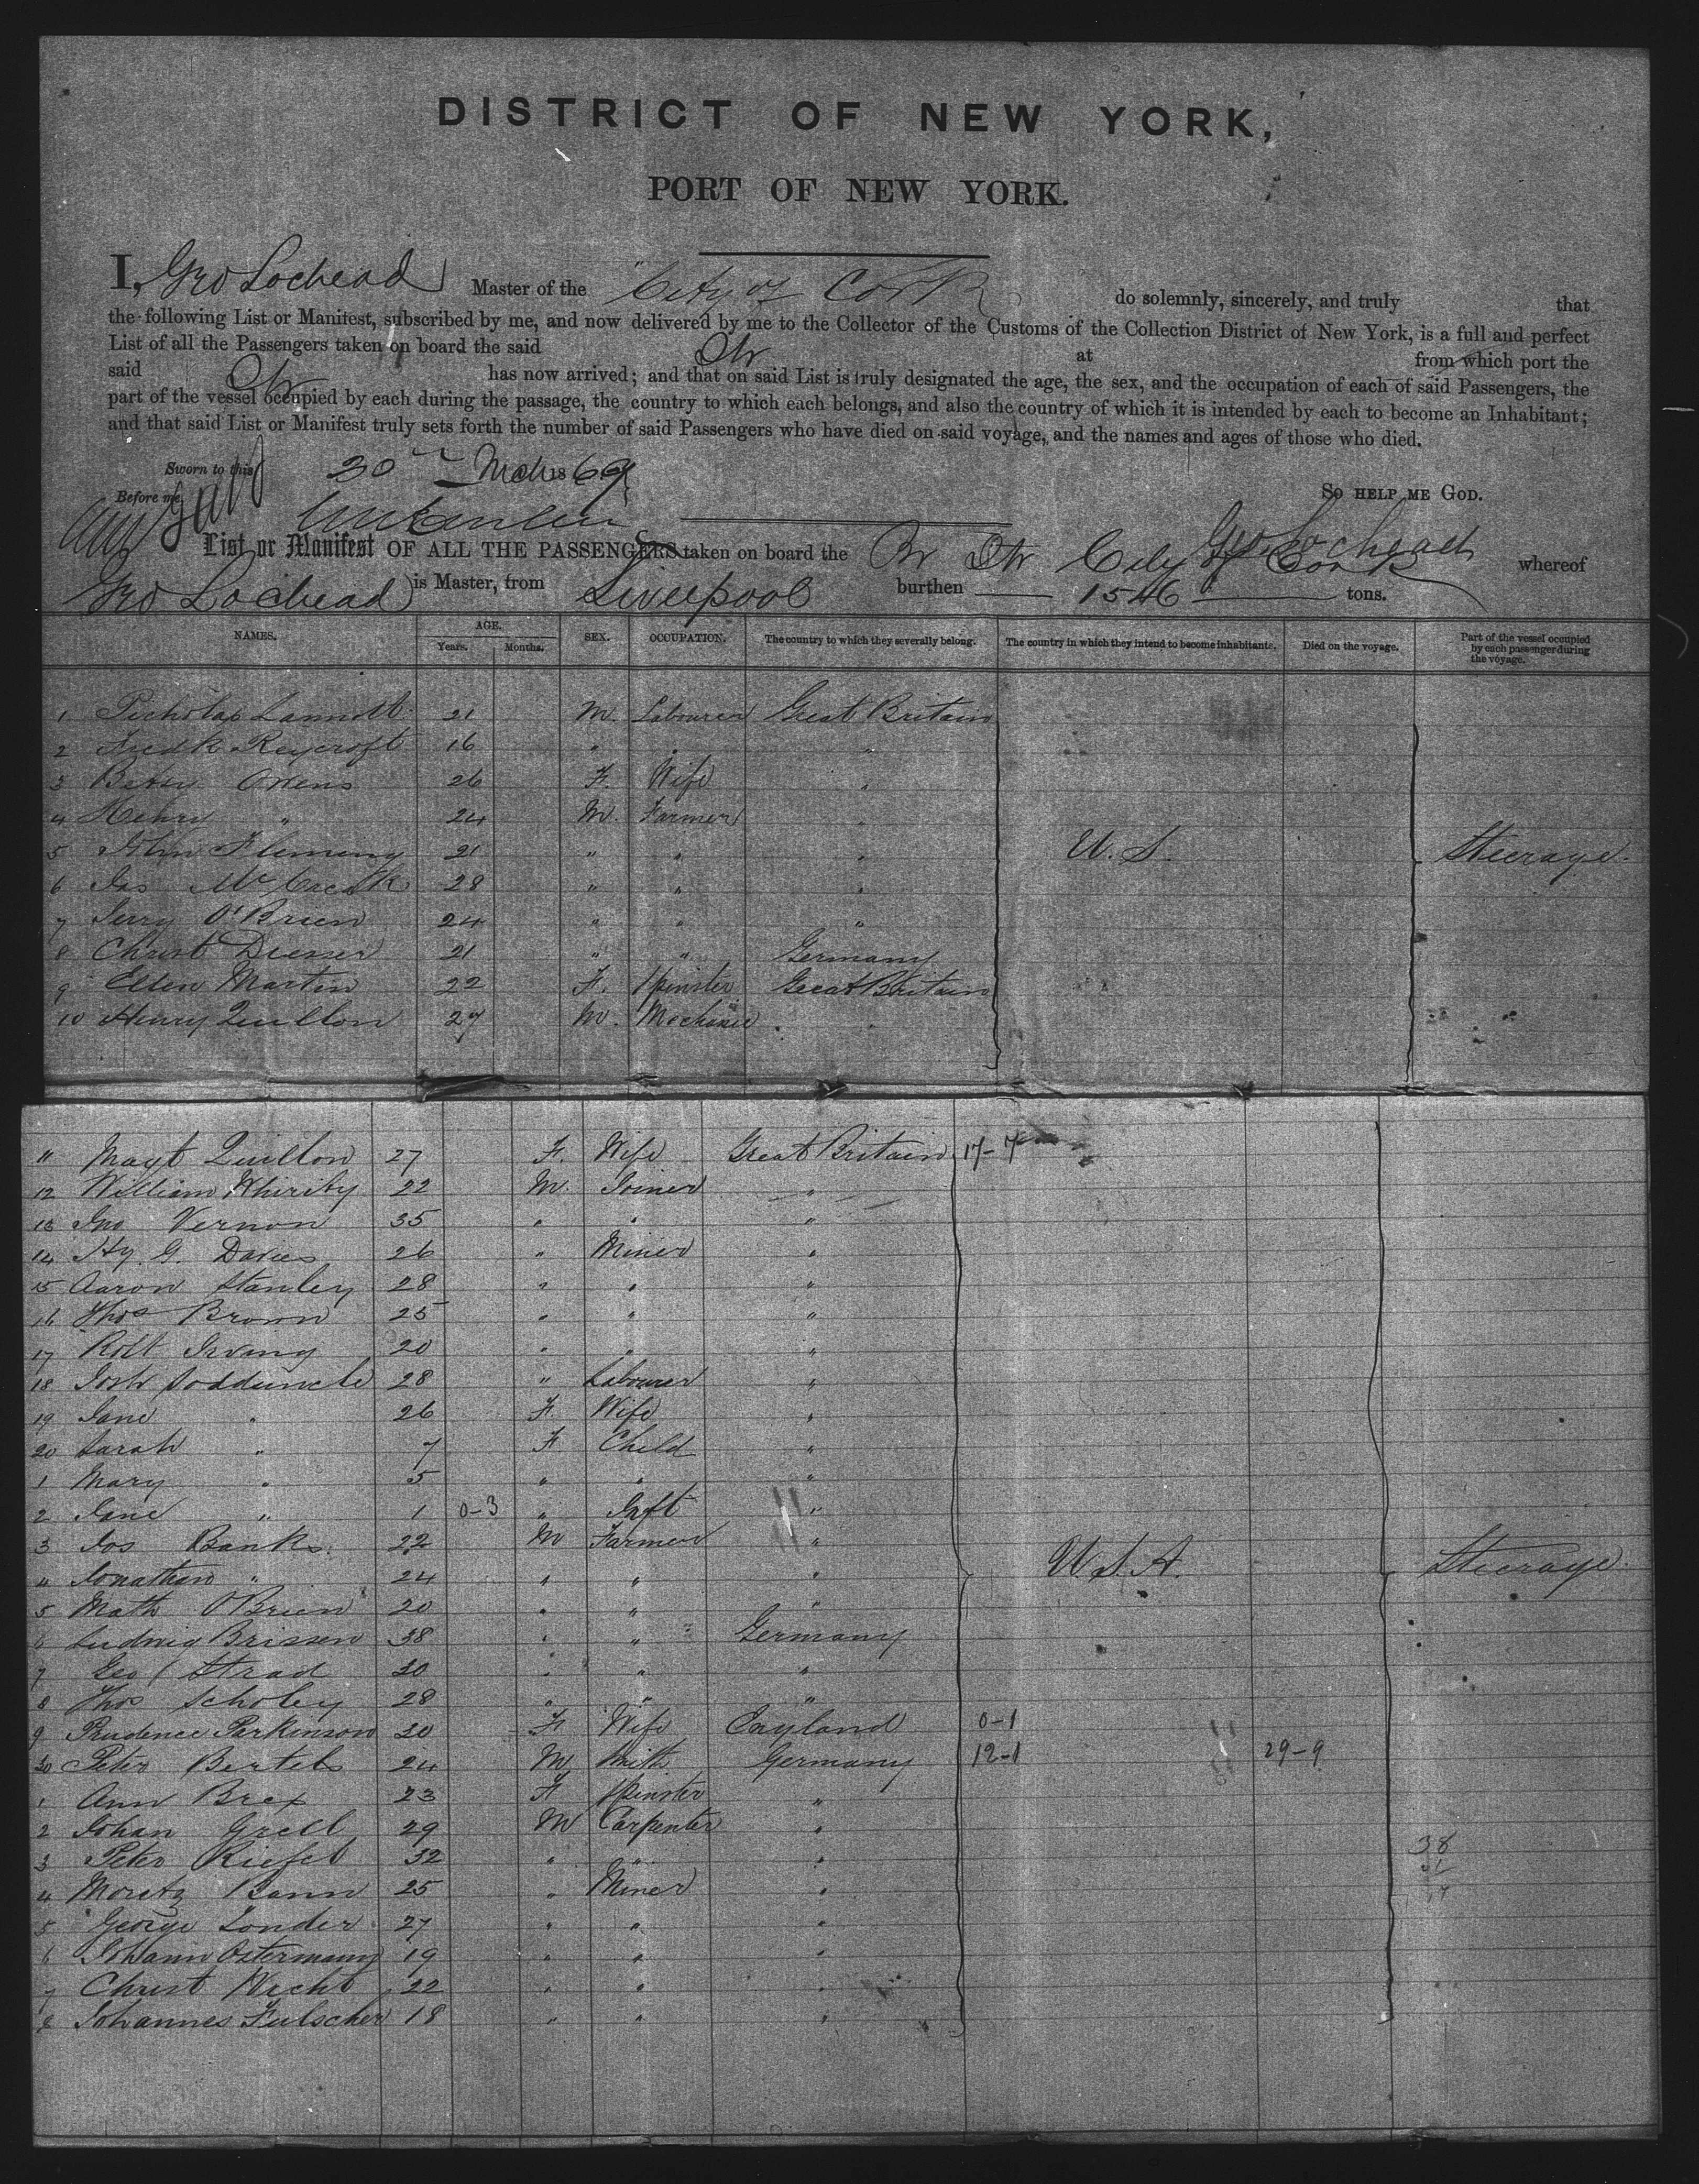 DISTRICT OF NEW YORK,
PORT OF NEW YORK.
I, Geo Lochead Master of the "City of Cork do solemnly, sincerely, and truly that
the following List or Manifest, subscribed by me, and now delivered by me to the Collector of the Customs of the Collection District of New York, is a full and perfect
List of all the Passengers taken on board the said Str at from which port the
said Str has now arrived; and that on said List is truly designated the age, the sex, and the occupation of each of said Passengers, the
part of the vessel occupied by each during the passage, the country to which each belongs, and also the country of which it is intended by each to become an Inhabitant;
and that said List or Manifest truly sets forth the number of said Passengers who have died on said voyage, and the names and ages of those who died.
Sworn to this 30 Mch 1869
So HELP ME GOD.
Before me
Geo. Lochead
List or Manifest OF ALL THE PASSENGERS taken on board the Br Str City of Cork whereof
Geo Lochead is Master, from Liverpool burthen 1546 tons.
NAMES. AGE. Years. Months. SEX. OCCUPATION. The country to which they severally belong. The country in which they intend to become inhabitants. Died on the voyage. Part of the vessel occupied by each passenger during the voyage.
1 21 M. Labourer Great Britain
2 Fredk Reycroft 16 " " "
3 Betsy Owens 26 F. Wife "
4 Henry " 24 M. Farmer "
5 John Fleming 21 " " " U. S. Steerage
6 Jas 28 " " "
7 Jerry O'Brien 24 " " "
8 Christ Diesser 21 " " Germany
9 Ellen Martin 22 F. Spinster Great Britain
10 Henry Quillon 27 M. Mechanic "
11 Magt Quillon 27 F. Wife Great Britain 17-7
12 William 22 M. Joiner "
13 Jno Vernon 35 " " "
14 Hy. G. Davies 26 " Miner "
15 Aaron Stanley 28 " " "
16 Thos Brown 25 " " "
17 Robt Irving 20 " " "
18 Josh 28 " Labourer "
19 Jane " 26 F. Wife "
20 Sarah " 7 F Child "
1 Mary " 5 " " "
2 Jane " 1 0-3 " Inft "
3 Jos Banks 22 M Farmer " U.S.A. Steerage
4 Jonathan " 24 " " "
5 Math O'Brien 20 " " "
6 Ludwig Brissen 38 " " Germany
7 Geo Strad 30 " " "
8 Thos Scholey 28 " " "
9 Prudence Parkinson 30 F. Wife England 0-1
30 Peter Bertels 24 M Smith Germany 12-1 29-9
1 Ann Brex 23 F Spinster "
2 Johan Grell 29 M Carpenter "
3 Peter Kiefel 32 " " " 38
4 Moretz Bann 25 " Miner "
5 George Londer 27 " " "
6 Johann Ostermann 19 " " "
7 Christ Wicht 22 " " "
8 Johannes Fulscher 18 " " "